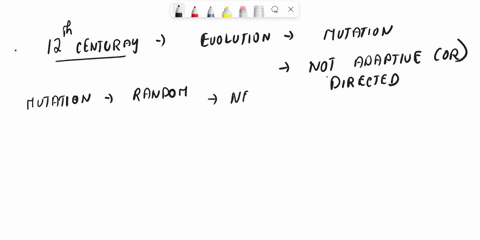 12th CENTURAY → EVOLUTION → MUTATION
→ NOT ADAPTIVE (OR)
DIRECTED
MUTATION → RANDOM → NE